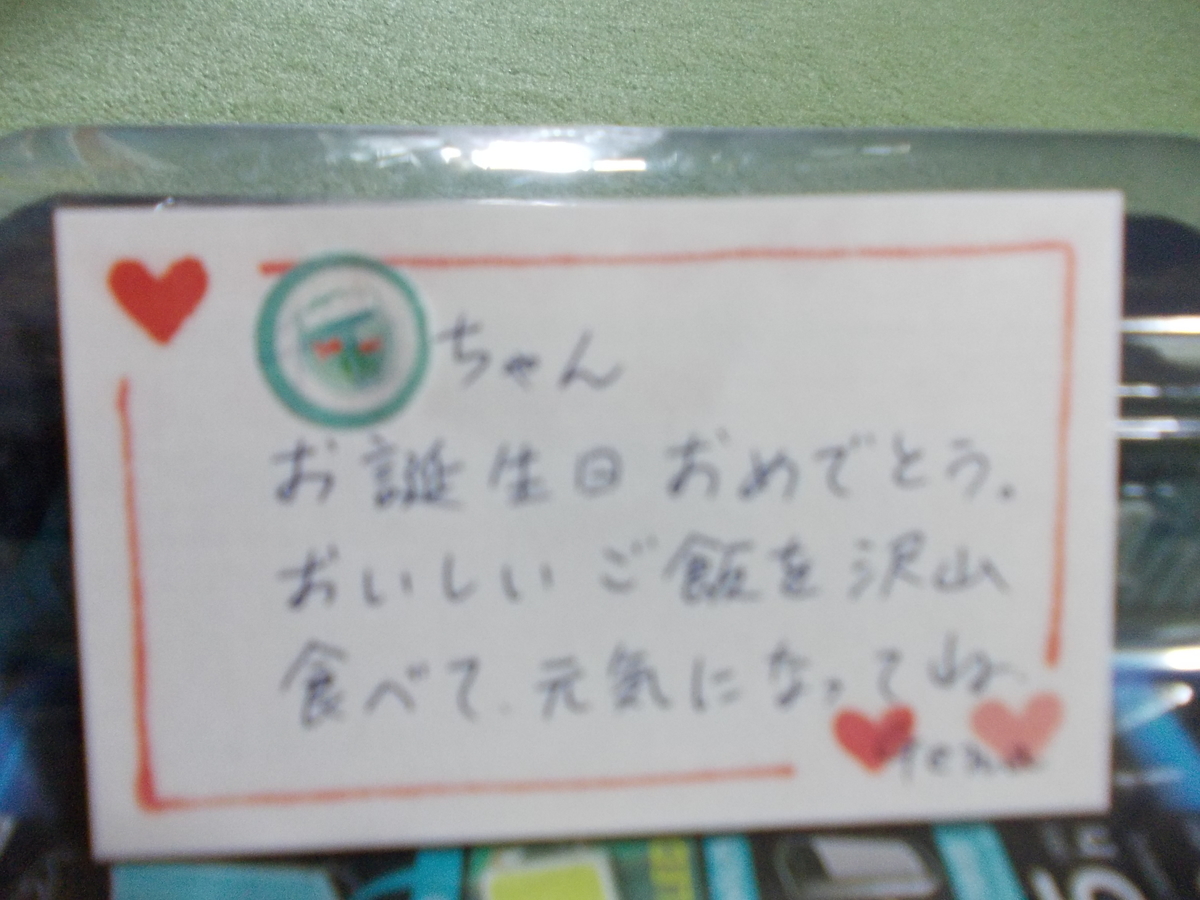 ちゃん
お誕生日おめでとう。
おいしいご飯を沢山
食べて、元気になってね